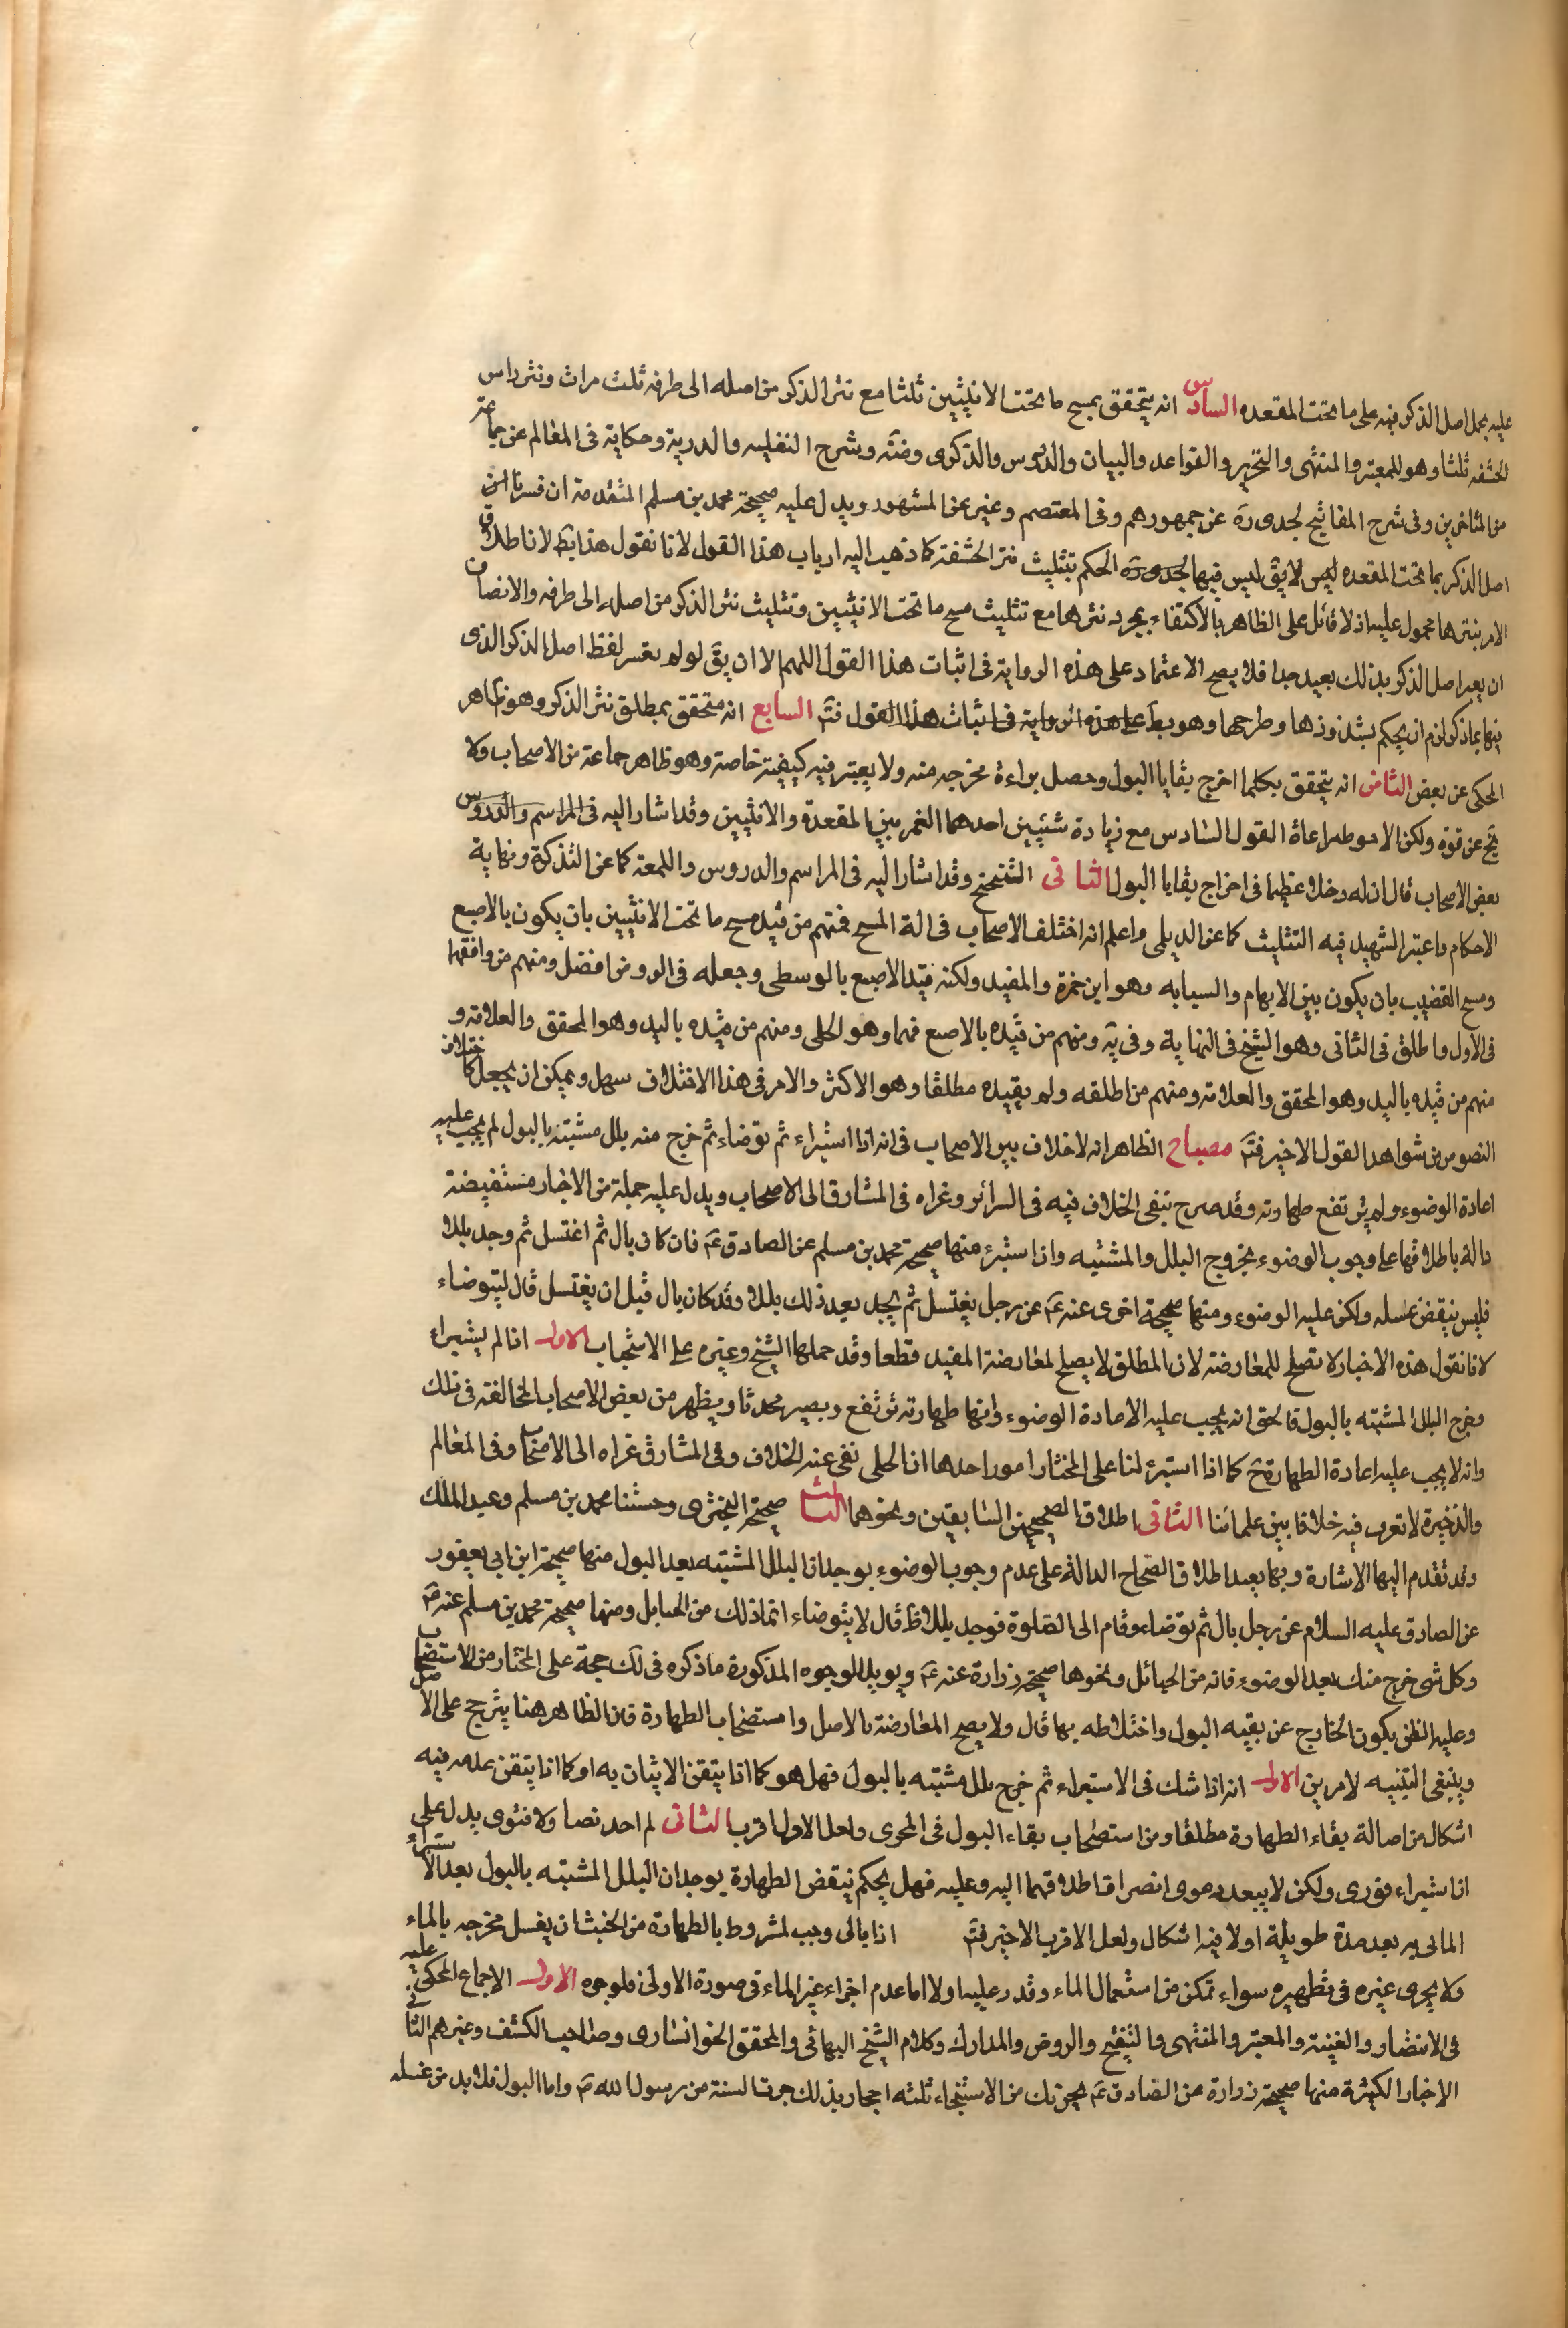 عليه بحمل اصل الذكر فيه على ما تحت المقعده السادس انه يتحقق بمسح ما تحت الانثيين ثلثا مع نتر الذكر من اصله الى طرفه ثلث مرات ونتر راس
الحشفه ثلثا وهو للمعتبر والمنتهى والتحرير والقواعد والبيان والدروس والذكرى وضه وشرح النفليه والدرية وحكاية فى المعالم عن جماعة
من المتاخرين وفى شرح المفاتيح لجدى ره عن جمهورهم وفى المعتصم وغيره عن المشهور ويدل عليه صحيحة محمد بن مسلم المتقدمة ان فسرنا
اصل الذكر بما تحت المقعده لا يق ليس فيها الحكم بتثليث نتر الحشفة كما ذهب اليه ارباب هذا القول لانا نقول هذا بط لان اطلاق
الامر بنترها محمول عليه اذ لا قائل على الظاهر بالاكتفاء بمجرد نترها مع تثليث مسح ما تحت الانثيين وتثليث نتر الذكر من اصله الى طرفه والانصاف
ان بعد اصل الذكر بذلك بعيد جدا فلا يصح الاعتماد على هذه الرواية فى اثبات هذا القول اللهم الا ان يق لو لم يفسر لفظ اصل الذكر الذى
فيها بما ذكر لزم ان يحكم بشذوذها وطرحها وهو بط على هذه الرواية فى اثبات هذا القول فتم السابع انه متحقق بمطلق نتر الذكر وهو ظاهر
المحكى عن بعض الثامن انه يتحقق بكلما اخرج بقايا البول وحصل براءة مخرجه منه ولا يعتبر فيه كيفية خاصة وهو ظاهر جماعة من الاصحاب ولا
يخ عن قوة ولكن الاحوط مراعاة القول السادس مع زيادة شيئين احدهما الغمز بين المقعدة والانثيين وقد اشار اليه فى المراسم والدروس
بعض الاصحاب قال ان له دخلا عظيما فى اخراج بقايا البول الثانى التنحنح وقد اشار اليه فى المراسم والدروس واللمعة كما عن التذكرة ونهاية
الاحكام واعتبر الشهيد فيه التثليث كما عن الديلمى واعلم انه اختلف الاصحاب فى الة المسح فمنهم من قيد مسح ما تحت الانثيين بان يكون بالاصبع
ومسح القضيب بان يكون بين الابهام والسبابه وهو ابن حمزة والمفيد ولكنه قيد الاصبع بالوسطى وجعله فى الروض افضل ومنهم من وافقهما
فى الاول واطلق فى الثانى وهو الشيخ فى النهاية وفى يه ومنهم من قيده بالاصبع فيهما وهو الحلى ومنهم من قيده باليد وهو المحقق والعلامة و
منهم من قيده باليد وهو المحقق والعلامة ومنهم من اطلقه ولم يقيده مطلقا وهو الاكثر والامر فى هذا الاختلاف سهل ويمكن ان يجعل كاختلاف
النصوص من شواهد القول الاخير فتم مصباح الظاهر انه لا خلاف بين الاصحاب فى انه اذا استبراء ثم توضاء ثم خرج منه بلل مشتبه بالبول لم يجب عليه
اعادة الوضوء ولم يرتفع طهارته وقد صرح بنفى الخلاف فيه فى السرائر وعزاه فى المشارق الى الاصحاب ويدل عليه جملة من الاخبار مستفيضة
دالة باطلاقها على وجوب الوضوء بخروج البلل والمشتبه واذا استبرئ منها صحيحة محمد بن مسلم عن الصادق ع فان كان بال ثم اغتسل ثم وجد بللا
فليس ينقض غسله ولكن عليه الوضوء ومنها صحيحة اخرى عنه ع عن رجل يغتسل ثم يجد بعد ذلك بللا وقد كان بال قبل ان يغتسل قال ليتوضاء
لانا نقول هذه الاخبار لا تصلح للمعارضة لان المطلق لا يصلح لمعارضة المقيد قطعا وقد حملها الشيخ وغيره على الاستحباب الاول اذا لم يستبراء
وخرج البلل المشتبه بالبول فالحق انه يجب عليه الاعادة الوضوء وانها طهارته ترتفع ويصير محدثا ويظهر من بعض الاصحاب المخالفة فى ذلك
وانه لا يجب عليه اعادة الطهارة ح كما اذا استبرئ لنا على المختار امور احدها ان الحلى نفى عنه الخلاف وفى المشارق عزاه الى الاصحاب وفى المعالم
والذخيرة لا نعرف فيه خلافا بين علمائنا الثانى اطلاق الصحيحين السابقين ونحوهما الثالث صحيحة البخترى وحسنتا محمد بن مسلم وعبد الملك
وقد تقدم اليها الاشارة وبها يقيد اطلاق الصحاح الدالة على عدم وجوب الوضوء بوجدان البلل المشتبه بعد البول منها صحيحة ابن ابى يعفور
عن الصادق عليه السلام عن رجل بال ثم توضاء وقام الى الصلوة فوجد بللا قال لا يتوضاء انما ذلك من الحبايل ومنها صحيحة محمد بن مسلم عنه ع
وكل شى خرج منك بعد الوضوء فانه من الحبائل ونحوها صحيحة زرارة عنه ع ويؤيد الوجوه المذكورة ما ذكره فى لك حجة على المختار من الاستصحاب
وعليه الظن بكون الخارج عن بقيه البول واختلاطه بها قال ولا يصح المعارضة بالاصل واستصحاب الطهارة فان الظاهر هنا يترجح على الاصل
وينبغى التنبيه لامرين الاول انه اذا شك فى الاستبراء ثم خرج بلل مشتبه بالبول فهل هو كما اذا يتقن الاتيان به او كما اذا يتقن عدمه فيه
اشكال من اصالة بقاء الطهارة مطلقا ومن استصحاب بقاء البول فى المجرى ولعل الاول اقرب الثانى لم اجد نصا ولا فتوى يدل على
ان استبراء فورى ولكن لا يبعد دعوى انصراف اطلاقهما اليه وعليه فهل يحكم بنقض الطهارة بوجدان البلل المشتبه بالبول بعد الاستبراء
الماتى به بعد مدة طويلة اولا فيه اشكال ولعل الاقرب الاخير فتم اذا بالى وجب لمشروط بالطهارة من الخبث ان يغسل مخرجه بالماء
ولا يجرى غيره فى تطهيره سواء تمكن من استعمال الماء وقدر عليه اولا اما عدم اجزاء غير الماء فى صورة الاولى فلوجوه الاول الاجماع المحكى عليه
فى الانتصار والغنية والمعتبر والمنتهى والتنقيح والروض والمدارك وكلام الشيخ البهائى والمحقق الخوانسارى وصاحب الكشف وغيرهم الثانى
الاخبار الكثيرة منها صحيحة زرارة عن الصادق ع يجزيك من الاستنجاء ثلثه احجار بذلك جرت السنة من رسول الله ص واما البول فلا بد من غسله